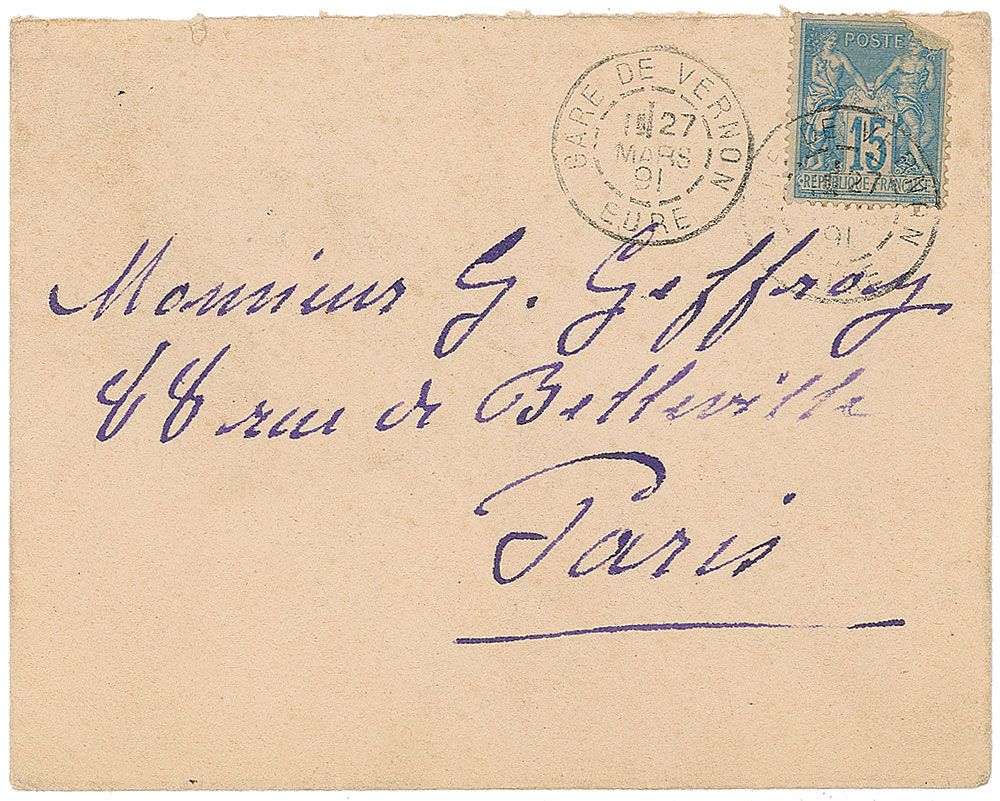 POSTE
15
REPUBLIQUE FRANCAISE
GARE DE VERNON
27
MARS
91
EURE
27
91
Monsieur G. Geffroy
88 rue de Belleville
Paris